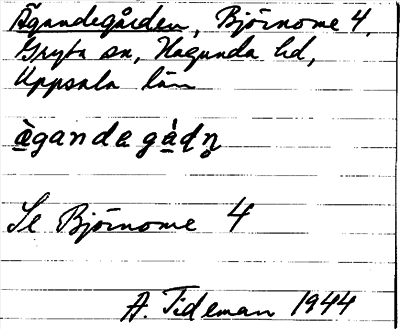 Ägandegården, Björnome 4,
Gryta sn, Hagunda hd,
Uppsala län
ägandegådn
Se Björnome 4
A. Tideman 1944